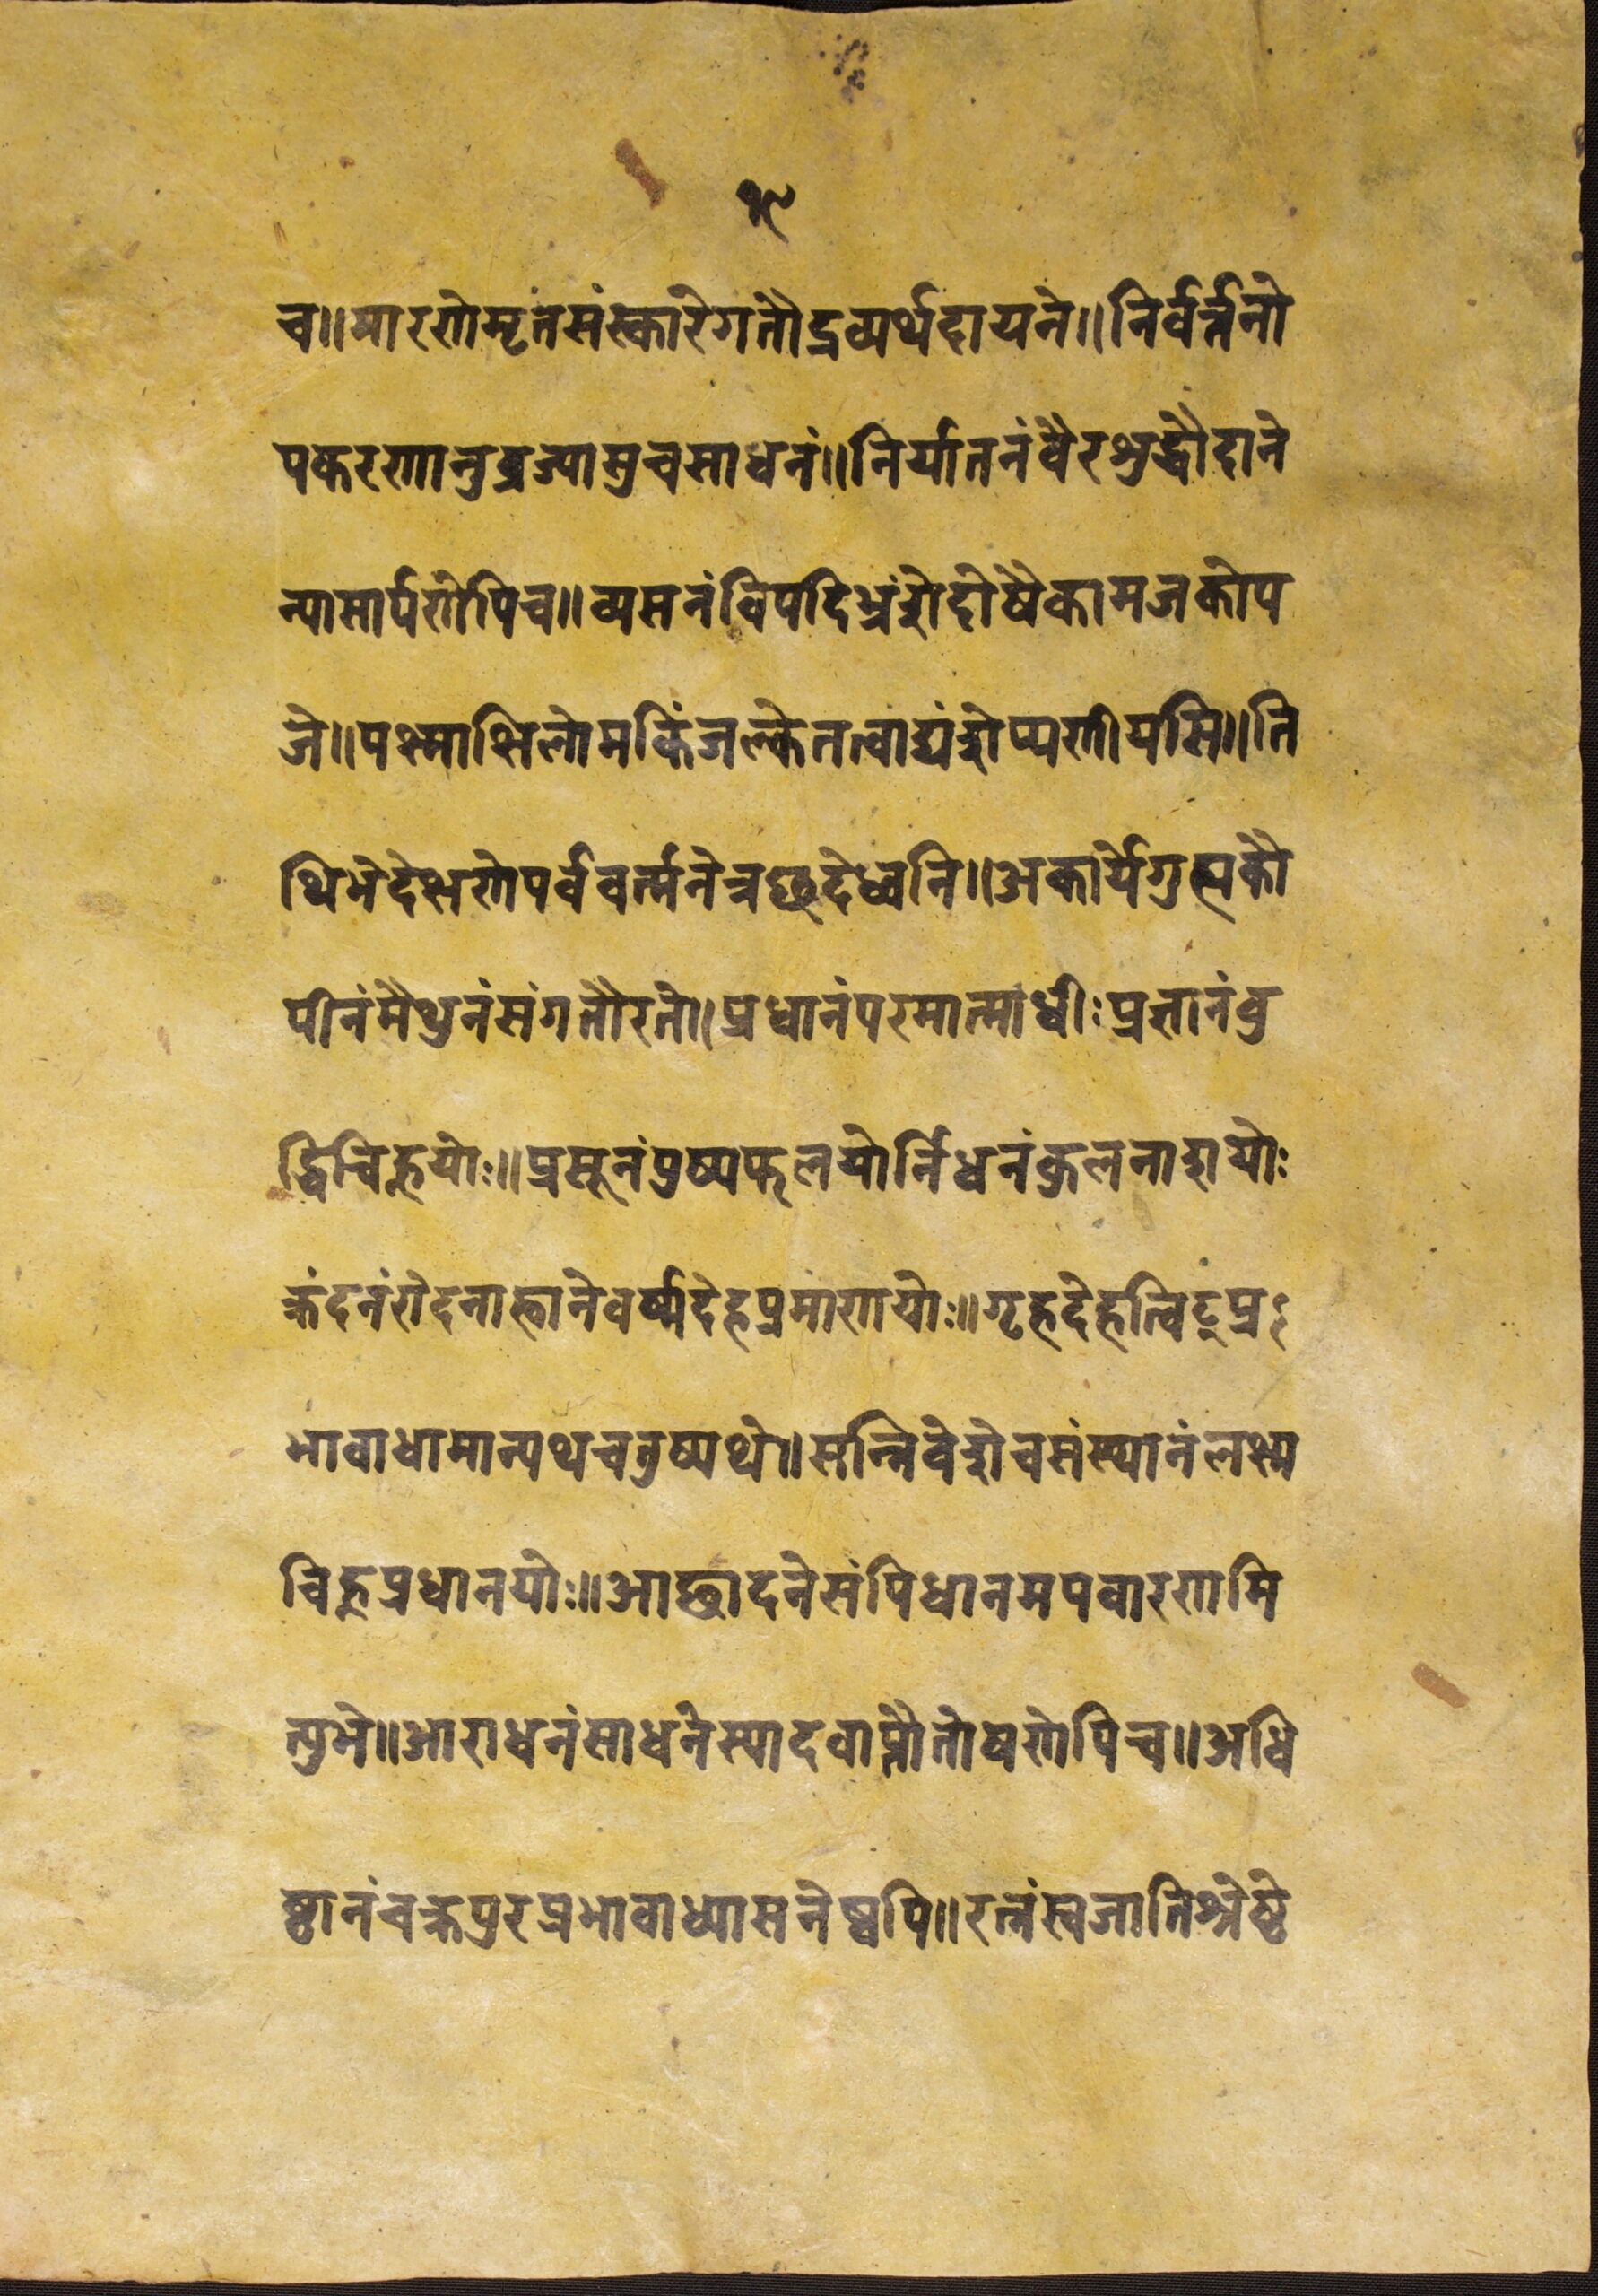 १९
च॥मारणेमृतसंस्कारेगतौद्रव्यर्थदायने॥निर्वर्त्तनो
पकरणानुव्रज्यामुचसाधनं॥निर्यातनंवैरशुद्धौदाने
न्यासार्पणेपिच॥व्यसनंविपदिभ्रंशेदोषैकामजकोप
जे॥पक्ष्माक्षिलोमकिंजल्केतत्वाद्यंशेप्यणीयसि॥ति
थिभेदेक्षणेपर्ववर्त्मनेत्रछदेध्वनि॥अकार्येगुह्यकौ
पीनंमैथुनंसंगतौरतो।प्रधानंपरमात्माधीःप्रज्ञानंबु
द्धिचिह्नयोः॥प्रसूनंपुष्पफलयोर्निधनंकुलनाशयोः
क्रंदनंरोदनाह्वानेवर्ष्मदेहप्रमाणयोः॥गृहदेहत्विट्प्र
भावाधामान्यथचतुष्पथे॥सन्निवेशेचसंस्थानंलक्ष्म
चिह्नप्रधानयोः॥आछादनेसंपिधानमपवारणमि
त्युभे॥आराधनंसाधनेस्यादवाप्तौतोषणेपिच॥अधि
ष्ठानंचक्रपुरप्रभावाध्यासनेष्वपि॥रत्नंस्वजातिश्रेष्ठे